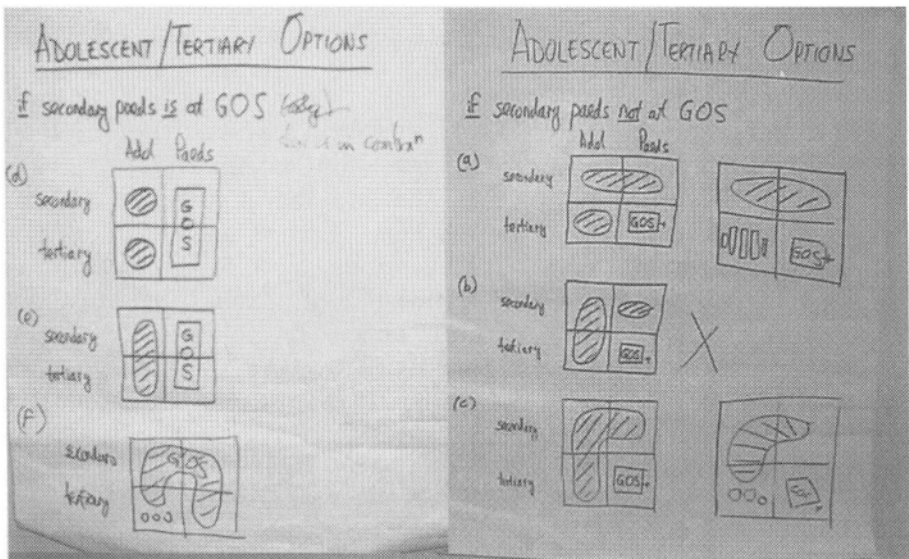 ADOLESCENT/TERTIARY OPTIONS
if secondary paeds is at GOS
in contrxn
Adol Paeds
(d)
secondary G
O
tertiary S
(e)
secondary G
O
tertiary S
(F)
secondary GOS
tertiary
ADOLESCENT/TERTIARY OPTIONS
if secondary paeds not at GOS
Adol Paeds
(a)
secondary
tertiary GOS+ GOS+
(b)
secondary
tertiary GOS+
X
(c)
secondary
tertiary GOS+ GOS+